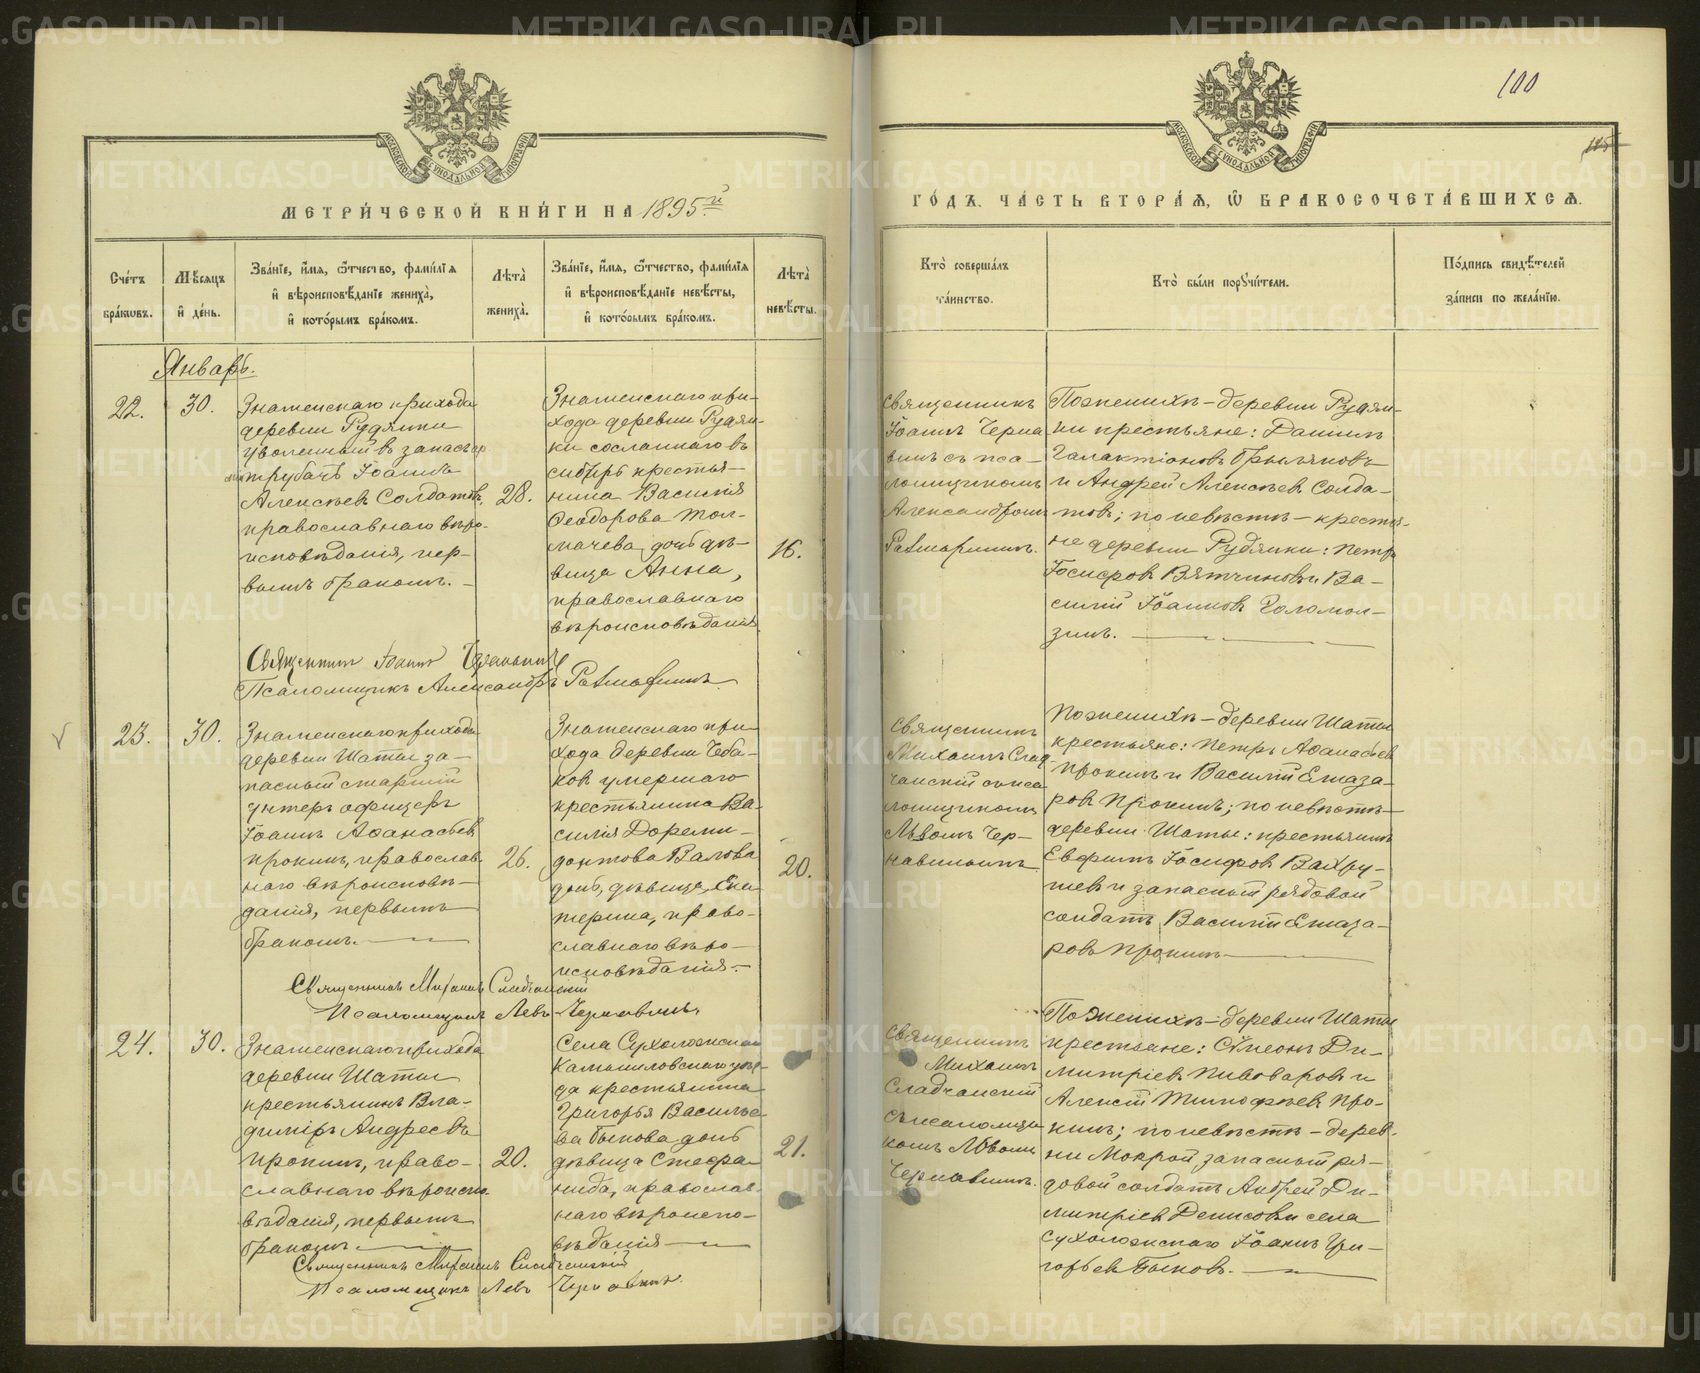 100
115
МЕТРИ́ЧЕСКОЙ КНИ́ГИ НА 1895й
ГО́ДЪ. ЧА́СТЬ ВТОРА́Я, Ѽ БРАКОСОЧЕТА́ВШИХСЯ.
Сче́тъ бра́кѡвъ.
Мѣ́сяцъ и҆ де́нь.
Зва́нїе, и҆́мя, ѻ҆́тчество, фами́лїя
и҆ вѣроисповѣ́данїе жениха̀,
и҆ кото́рымъ бра́комъ.
Лѣта̀ жениха̀.
Зва́нїе, и҆́мя, ѻ҆́тчество, фами́лїя
и҆ вѣроисповѣ́данїе невѣ́сты,
и҆ кото́рымъ бра́комъ.
Лѣта̀ невѣ́сты.
Кто̀ соверша́лъ
та́инство.
Кто̀ бы́ли порꙋчи́тели.
По́дпись свидѣ́телей
за́писи по жела́нїю.
Январь.
22.
30.
Знаменскаго прихода
деревни Рудянки
уволенный въ запасъ
трубачъ Іоаннъ
Алексѣевъ Солдатовъ,
православнаго вѣро-
исповѣданія, пер-
вымъ бракомъ.
28.
Знаменскаго при-
хода деревни Рудян-
ки сосланнаго въ
сибирь крестья-
нина Василія
Ѳеодорова Тол-
мачева дочь дѣ-
вица Анна,
православнаго
вѣроисповѣданія.
16.
Священникъ
Іоаннъ Черна
винъ съ пса-
ломщикомъ
Александромъ
По женихѣ - деревни Рудян-
ки крестьяне: Даніилъ
Галактіоновъ Брылуновъ
и Андрей Алексѣевъ Солда-
товъ; по невѣстѣ - крестья-
не деревни Рудянки: Петръ
Іосифовъ Вятчиновъ и Ва-
силій Іоанновъ Голомол-
зинъ.
Священникъ Іоаннъ Чернавинъ
Псаломщикъ Александръ
23.
30.
Знаменскаго прихода
деревни Шаты за-
пасный старшій
унтеръ офицеръ
Іоаннъ Аѳанасьевъ
Прокинъ, православ-
наго вѣроисповѣ-
данія, первымъ
бракомъ.
26.
Знаменскаго при-
хода деревни Чеба-
ковъ умершаго
крестьянина Ва-
силія Дореми-
донтова Валова
дочь, дѣвица, Ека
терина, право-
славнаго вѣро-
исповѣданія.
20.
Священникъ
Михаилъ Слад-
чанскій съ пса
ломщикомъ
Львомъ Чер-
навинымъ
По женихѣ - деревни Шаты
крестьяне: Петръ Аѳанасьевъ
Прокинъ и Василій Елиза-
ровъ Прокинъ; по невѣстѣ -
деревни Шаты: крестьянинъ
Евфимъ Іосифовъ Вахру-
шевъ и запасный рядовой
солдатъ Василій Елиза-
ровъ Прокинъ
Священникъ Михаилъ Сладчанскій
Псаломщикъ Левъ Чернавинъ.
24.
30.
Знаменскаго прихода
деревни Шаты
крестьянинъ Вла-
диміръ Андреевъ
Прокинъ, право-
славнаго вѣроиспо
вѣданія, первымъ
бракомъ.
20.
Села Сухоложскаго
Камышловскаго уѣз-
да крестьянина
Григорья Василье-
ва Быкова дочь
дѣвица Стефа-
нида, православ-
наго вѣроиспо-
вѣданія
21.
Священникъ
Михаилъ
Сладчанскій
съ псаломщи
комъ Львомъ
Чернавинымъ.
По женихѣ - деревни Шаты
крестьяне: Сѵмеонъ Ди-
митріевъ Пивоваровъ и
Алексѣй Тимофѣевъ Про-
кинъ; по невѣстѣ - дерев-
ни Мокрой запасный ря-
довой солдатъ Андрей Ди-
митріевъ Денисовъ и села
Сухоложскаго Іоаннъ Гри-
горьевъ Быковъ.
Священникъ Михаилъ Сладчанскій
Псаломщикъ Левъ Чернавинъ.
METRIKI.GASO-URAL.RU